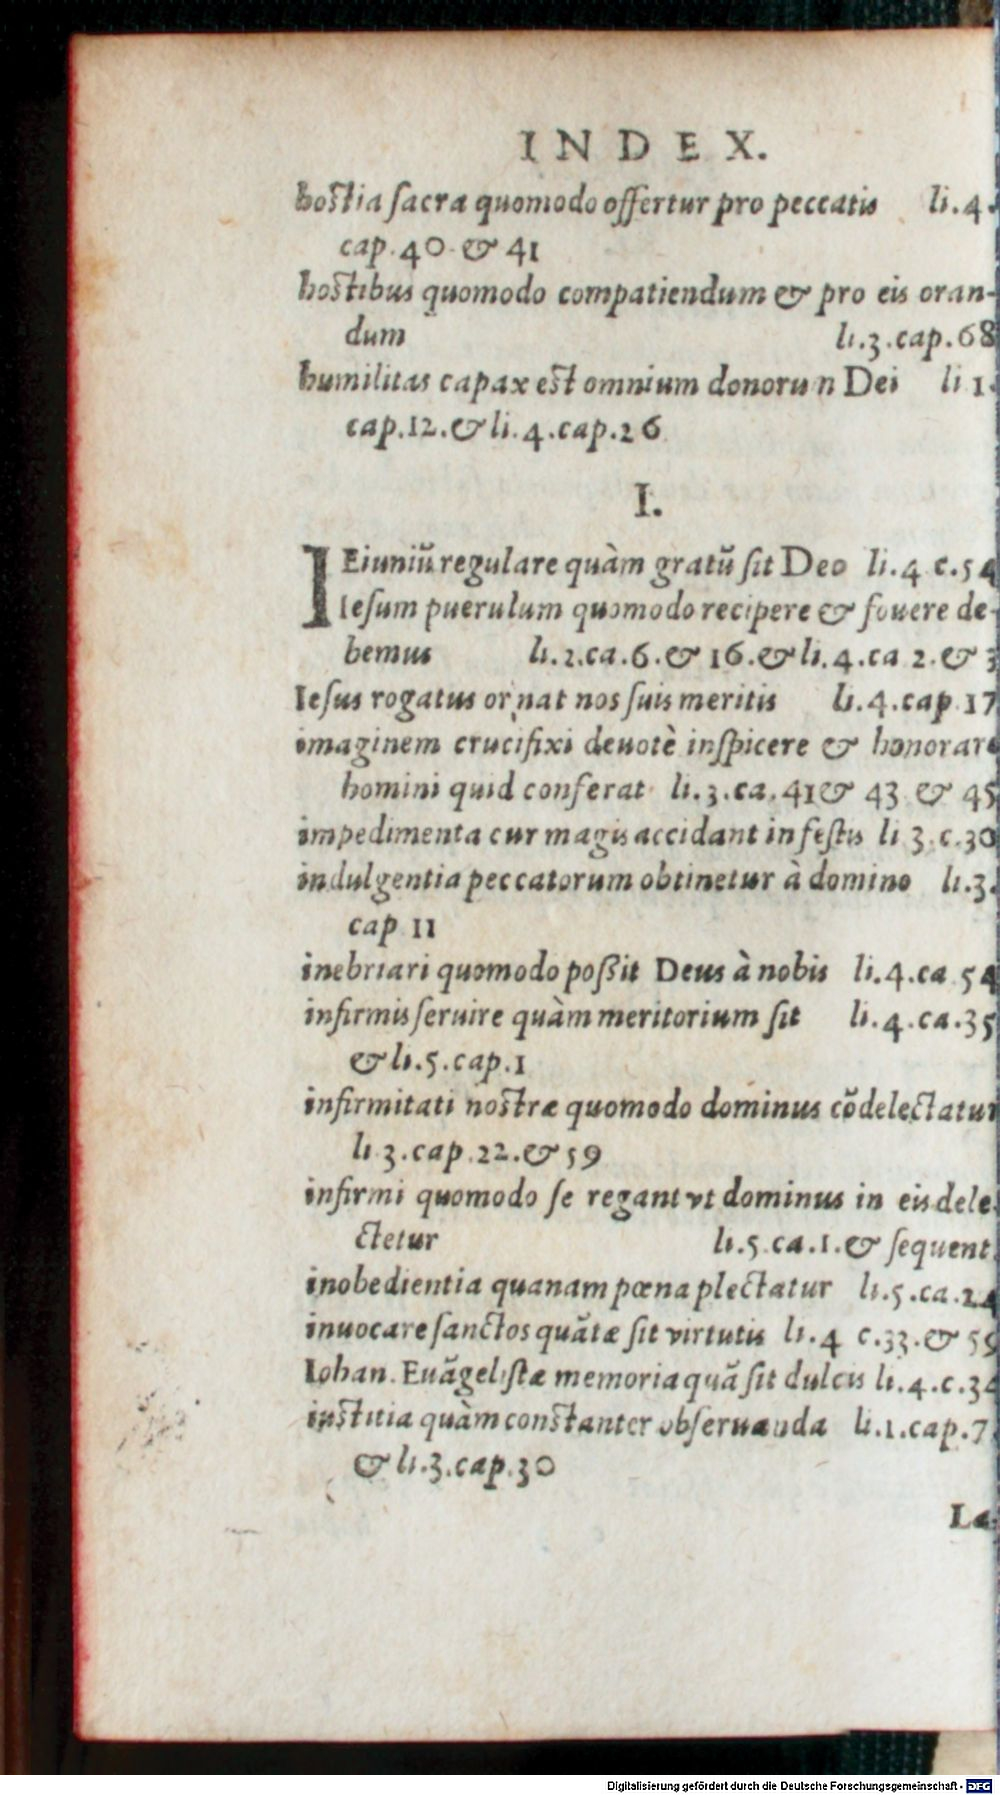 INDEX.
hostia sacra quomodo offertur pro peccatis li.4.
cap.40. & 41
hostibus quomodo compatiendum & pro eis oran-
dum li.3.cap.68
humilitas capax est omnium donorum Dei li 1.
cap.12.& li.4.cap.26
I.
IEiuniũ regulare quàm gratũ sit Deo li.4 c.54
Iesum puerulum quomodo recipere & fouere de-
bemus li.2.ca.6.& 16.& li.4.ca 2.& 3
Iesus rogatus ornat nos suis meritis li.4.cap 17
imaginem crucifixi deuotè inspicere & honorare
homini quid conferat li.3.ca.41& 43 & 45
impedimenta cur magis accidant in festis li 3.c.30
indulgentia peccatorum obtinetur à domino li.3.
cap 11
inebriari quomodo poßit Deus à nobis li.4.ca 54
infirmis seruire quàm meritorium sit li.4.ca.35
& li.5.cap.1
infirmitati nostræ quomodo dominus cõdelectatur
li 3.cap.22.& 59
infirmi quomodo se regant vt dominus in eis dele
ctetur li.5.ca.1.& sequent.
inobedientia quanam pœna plectatur li.5.ca.24
inuocare sanctos quãtæ sit virtutis li.4 c.33.& 59
Iohan. Euãgelistæ memoria quã sit dulcis li.4.c.34
iustitia quàm constanter obseruanda li.1.cap.7
& li.3.cap.30
La
Digitalisierung gefördert durch die Deutsche Forschungsgemeinschaft - DFG